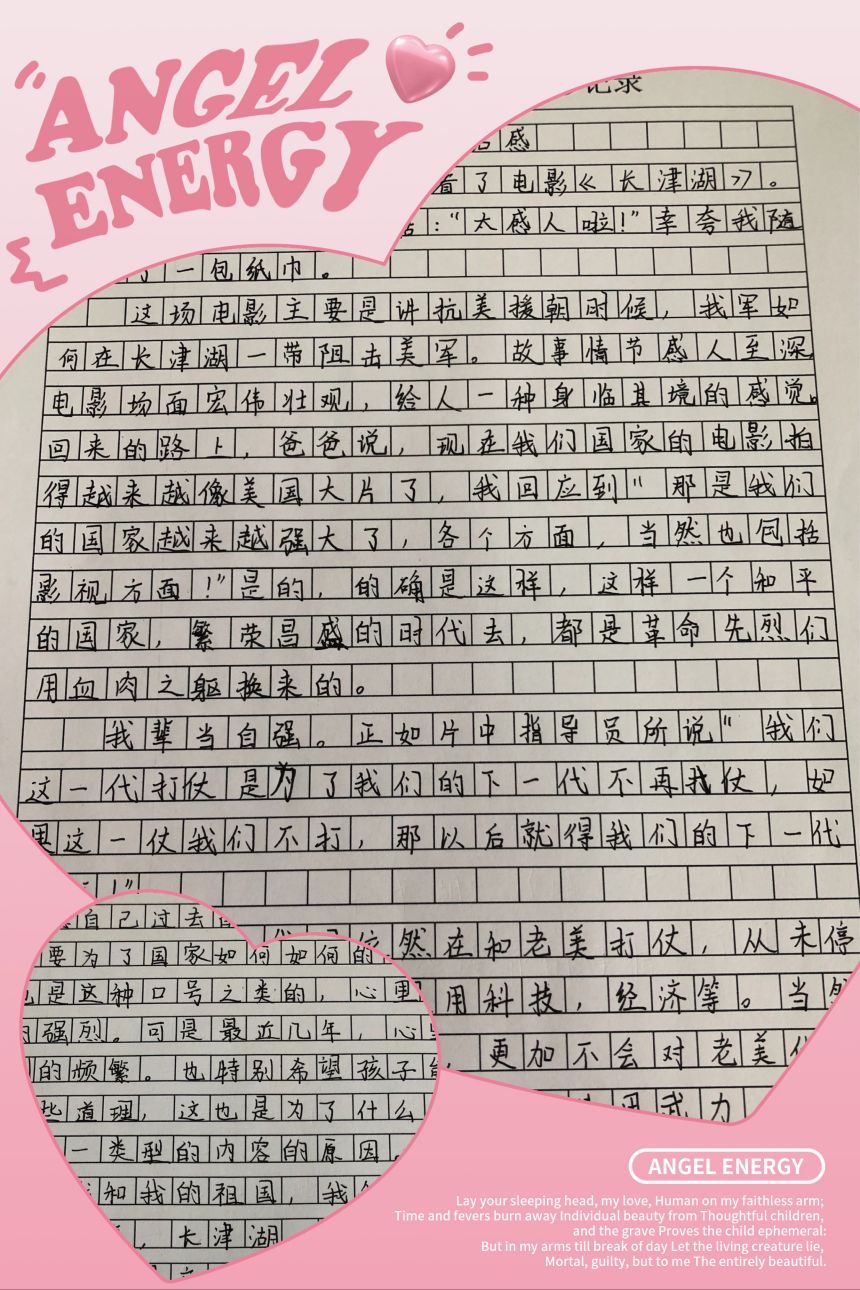 ANGEL
ENERGY
记录
后感
看了电影《长津湖》。
：“太感人啦！”幸夸我随
了一包纸巾。
这场电影主要是讲抗美援朝时候，我军如
何在长津湖一带阻击美军。故事情节感人至深，
电影场面宏伟壮观，给人一种身临其境的感觉。
回来的路上，爸爸说，现在我们国家的电影拍
得越来越像美国大片了，我回应到“那是我们
的国家越来越强大了，各个方面，当然也包括
影视方面！”是的，的确是这样，这样一个和平
的国家，繁荣昌盛的时代去，都是革命先烈们
用血肉之躯换来的。
我辈当自强。正如片中指导员所说“我们
这一代打仗是为了我们的下一代不再找仗，如
果这一仗我们不打，那以后就得我们的下一代
！”
然在和老美打仗，从未停
用科技，经济等。当然
，更加不会对老美
武力
自己过去
要为了国家如何如何的
是这种口号之类的，心里
强烈。可是最近几年，心里
的频繁。也特别希望孩子
些道理，这也是为了什么
一类型的内容的原因。
和我的祖国，我
，长津湖
ANGEL ENERGY
Lay your sleeping head, my love, Human on my faithless arm;
Time and fevers burn away Individual beauty from Thoughtful children,
and the grave Proves the child ephemeral:
But in my arms till break of day Let the living creature lie,
Mortal, guilty, but to me The entirely beautiful.